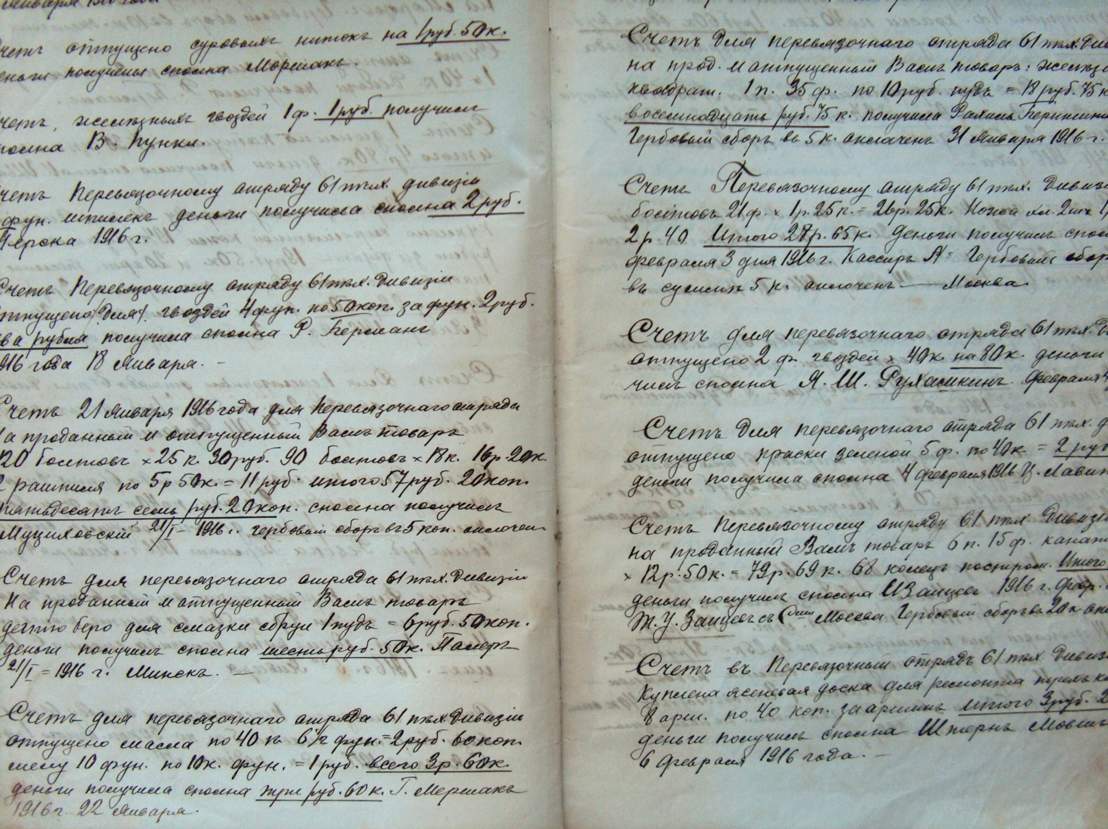 Января 1916 года
Счетъ отпущено суровыхъ нитокъ на 1 руб. 50 к.
деньги получены сполна Моршакъ.
Счетъ, желѣзныхъ гвоздей 1 ф. 1 руб. получилъ
сполна В.
Счетъ Перевязочному отряду 61 пѣх. дивизіи
фун. деньги получила сполна 2 руб.
1916 г.
Счетъ Перевязочному отряду 61 пѣх. Дивизіи
отпущено (для) гвоздей 4 фун. по 50 коп. за фун. 2 руб.
два рубля получила сполна Р. Берманъ
1916 года 18 Января. —
Счетъ 21 Января 1916 года для Перевязочнаго отряда
На проданный и отпущенный Вамъ товаръ
120 болтовъ × 25 к. 30 руб. 90 болтовъ × 18 к. 16 р. 20 к.
2 по 5 р 50 к. = 11 руб. итого 57 руб. 20 коп.
пятьдесятъ семь руб. 20 коп. сполна получилъ
21/I – 1916 г. гербовый сборъ въ 5 коп. оплоченъ
Счетъ для перевязочнаго отряда 61 пѣх. Дивизіи
На проданный и отпущенный Вамъ товаръ
для смазки сбруи 1 пудъ = 6 руб. 50 коп.
деньги получилъ сполна шесть руб. 50 к.
21/I = 1916 г. Минскъ. —
Счетъ для перевязочнаго отряда 61 пѣх. Дивизіи
отпущено масла по 40 къ 6½ фун. = 2 руб. 60 коп.
мелу 10 фун. по 10 к. фун. = 1 руб. всего 3 р. 60 к.
деньги получила сполна три руб. 60 к. Г. Мершакъ
1916 г. 22 Января.
Счетъ Для перевязочнаго отряда 61 пѣх. Див
на прод. и отпущенный Вамъ товаръ: желѣз
квадрат. 1 п. 35 ф. по 10 руб. пудъ = 18 руб. 75 к
восемнадцать руб. 75 к. получила
Гербовый сборъ въ 5 к. оплаченъ 31 Января 1916 г.
Счетъ Перевязочному отряду 61 пѣх. Дивиз
болтовъ 21 ф. × 1 р. 25 к. = 26 р. 25 к.
2 р. 40 Итого 28 р. 65 к. Деньги получилъ спол
февраля 3 дня 1916 г. Кассиръ Гербовый сбор
въ суммѣ 5 к. оплоченъ — Москва.
Счетъ для перевязочнаго отряда 61 пѣх. Д
отпущено 2 ф. гвоздей × 40 к. на 80 к. деньги
чилъ сполна Я. Ш. Рухамкинъ. Февраля
Счетъ Для перевязочнаго отряда 61 пѣх. Д
отпущено краски зеленой 5 ф. по 40 к. = 2 руб
деньги получила сполна 4 февраля 1916
Счетъ Перевязочному отряду 61 пѣх. Дивиз
на проданный Вамъ товаръ 6 п. 15 ф. канат
× 12 р. 50 к. = 79 р. 69 к. Итого
деньги получилъ сполна И Зайцевъ 1916 г. фев.
Москва Гербовый сборъ въ 20 к. опл
Счетъ въ Перевязочный отрядъ 61 пѣх. Дивиз
Куплена ясеневая доска для ремонта
8 арш. по 40 коп. за аршинъ итого 3 руб. 2
деньги получилъ сполна Штернъ
6 Февраля 1916 года. —